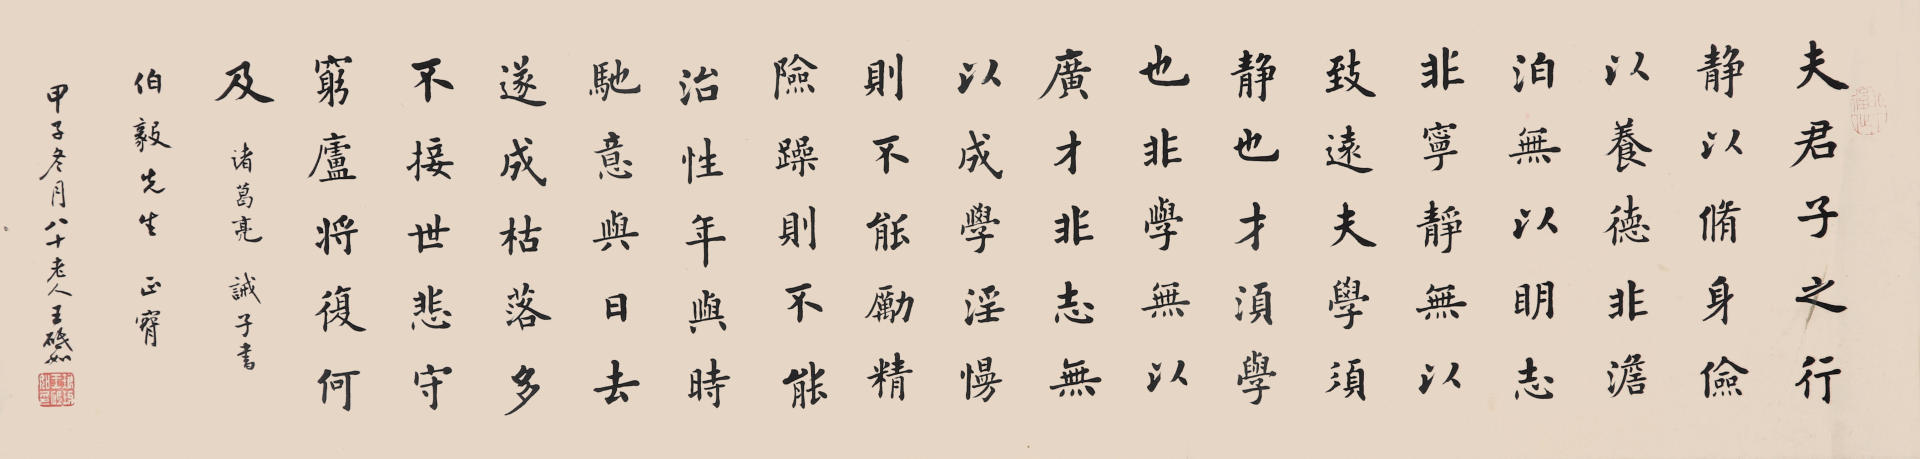 夫君子之行
静以脩身儉
以養德非澹
泊無以明志
非寧静無以
致遠夫學須
静也才湏學
也非學無以
廣才非志無
以成學淫慢
則不能勵精
險躁則不能
治性年與時
馳意與日去
遂成枯落多
不接世悲守
窮廬将復何
及 诸葛亮 誡子書
伯毅先生 正脔
甲子冬月八十老人王砥如